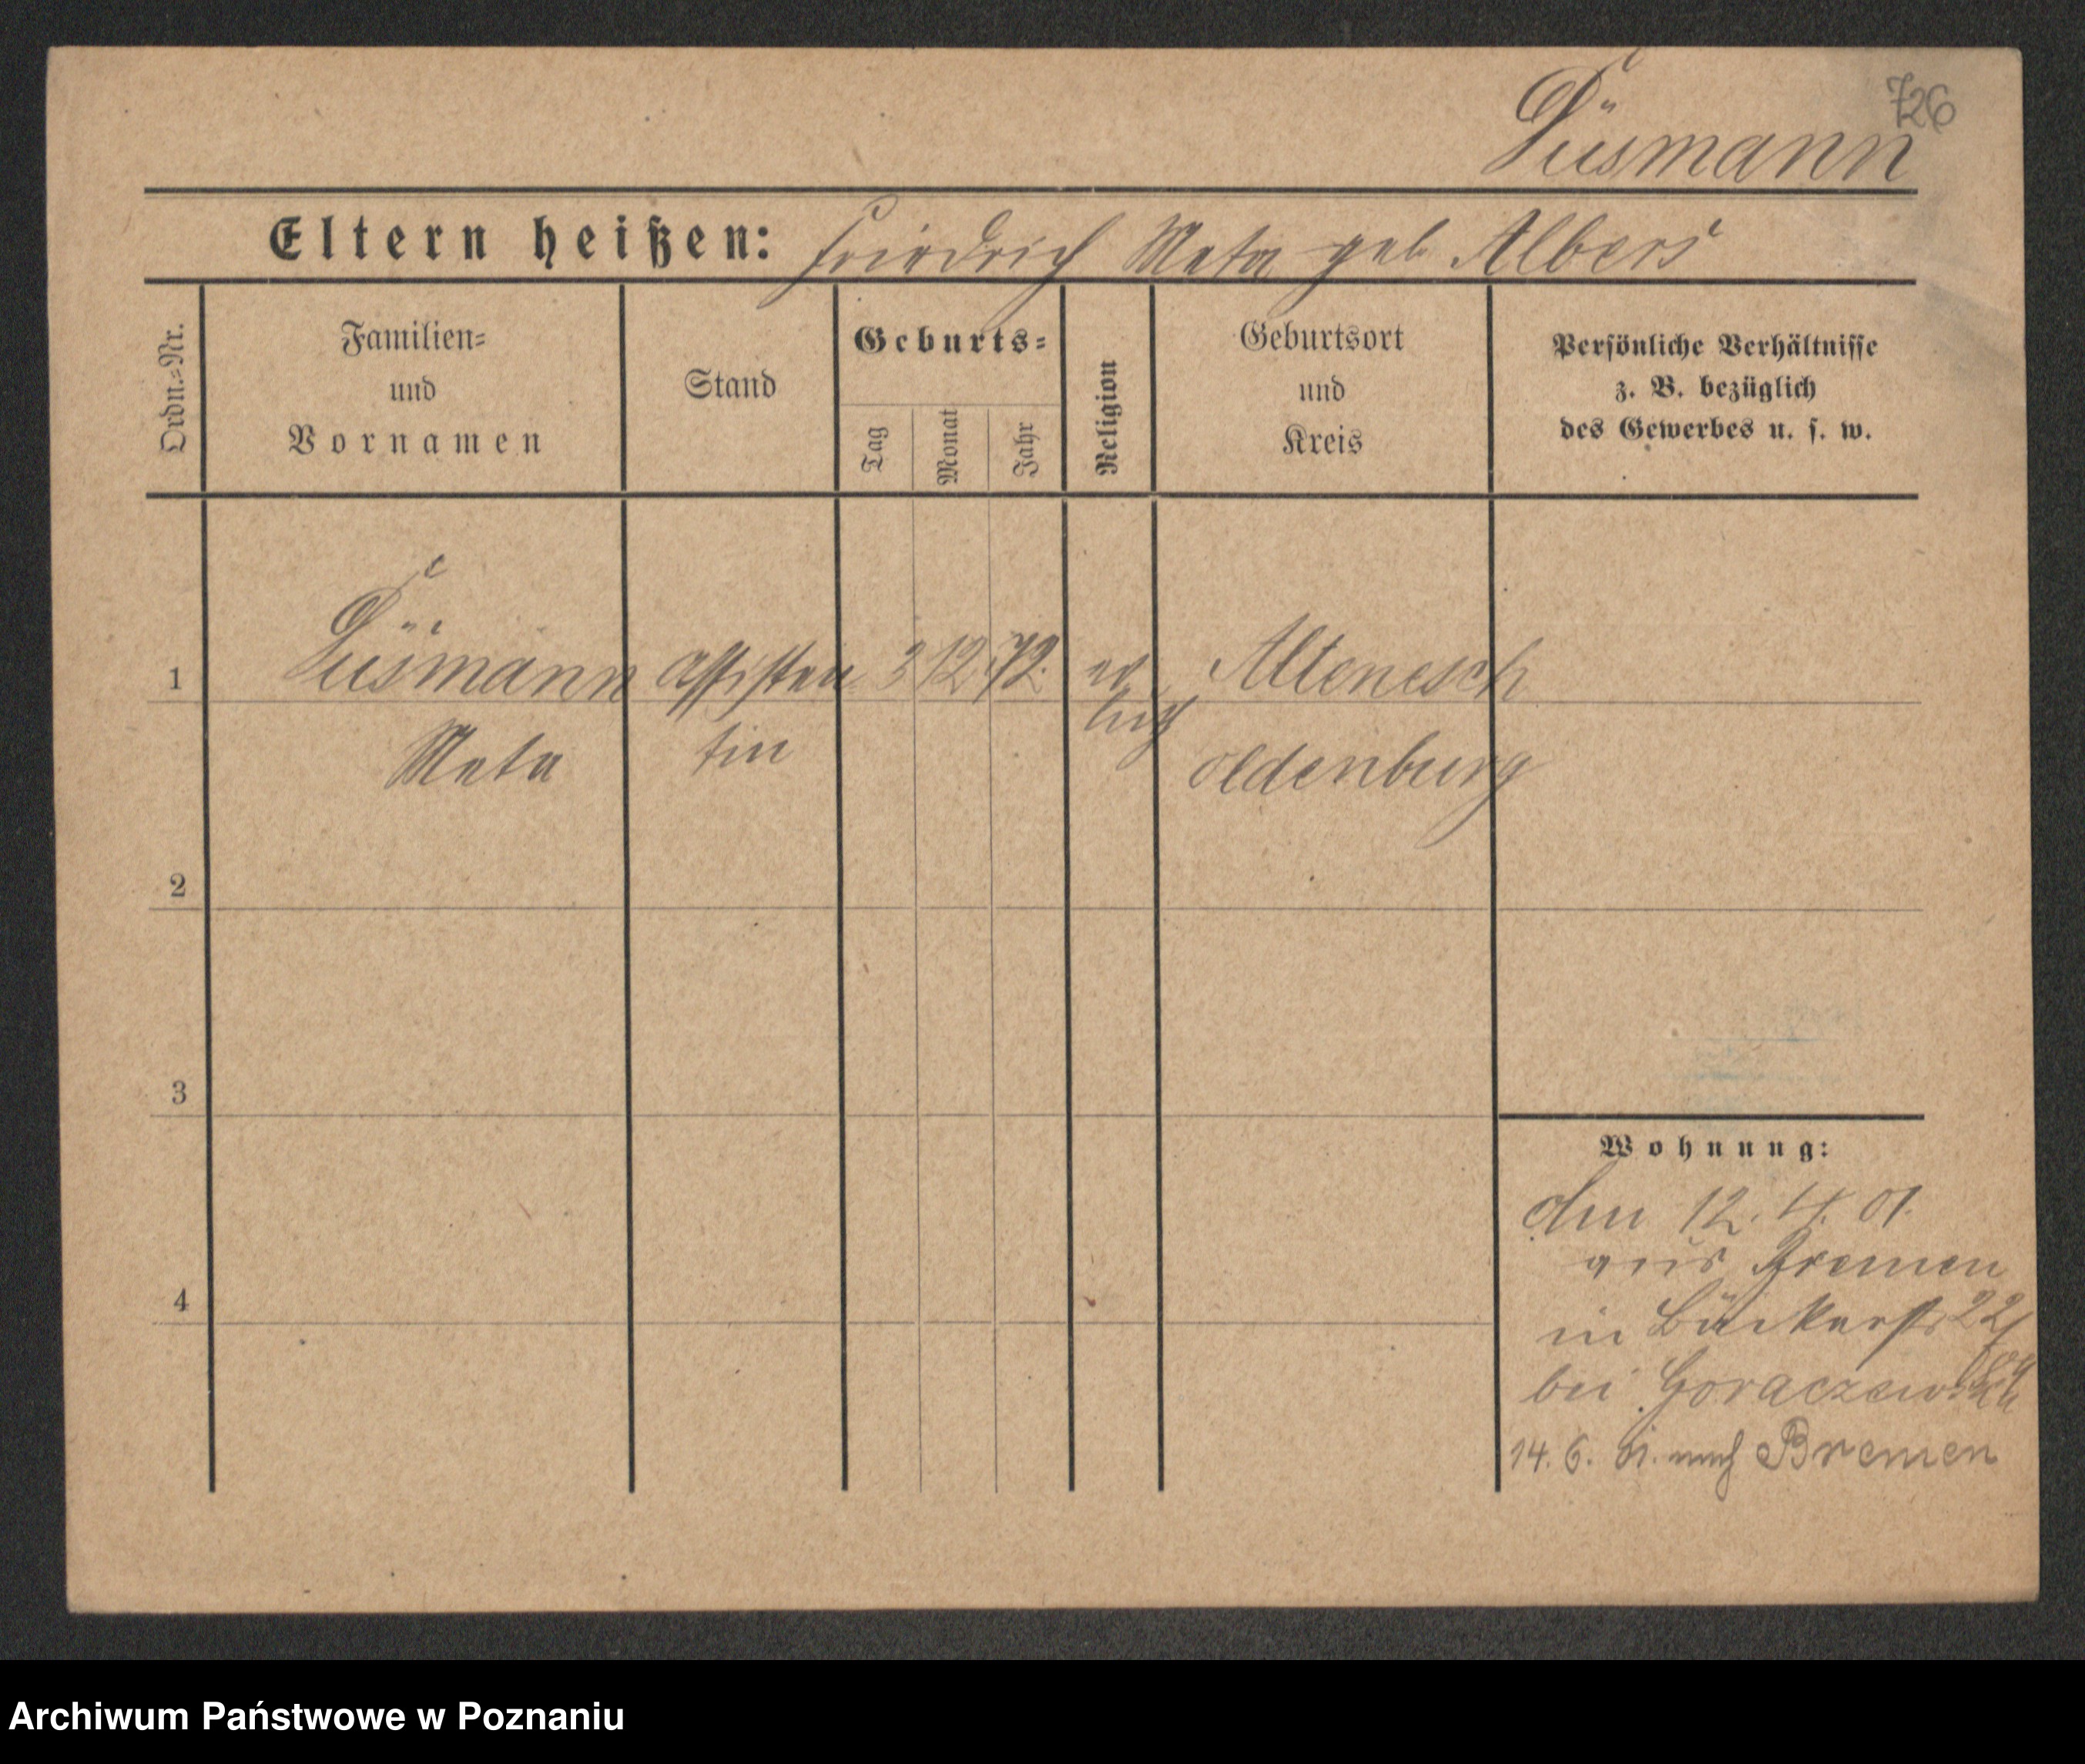 726
Düsmann
Eltern heißen: Friedrich Meta geb Albers
Ordn.=Nr.
Familien=
und
Vornamen
Stand
Geburts=
Tag
Monat
Jahr
Religion
Geburtsort
und
Kreis
Persönliche Verhältnisse
z. B. bezüglich
des Gewerbes u. s. w.
1 Düsmann Assisten 3 12 72. ev Altenesch
luth
Meta tin Oldenburg
2
3
4
Wohnung:
den 12. 4. 01.
aus Bremen
in Bäckerstr 22
bei Goraczewska
14. 6. 01. nach Bremen
Archiwum Państwowe w Poznaniu